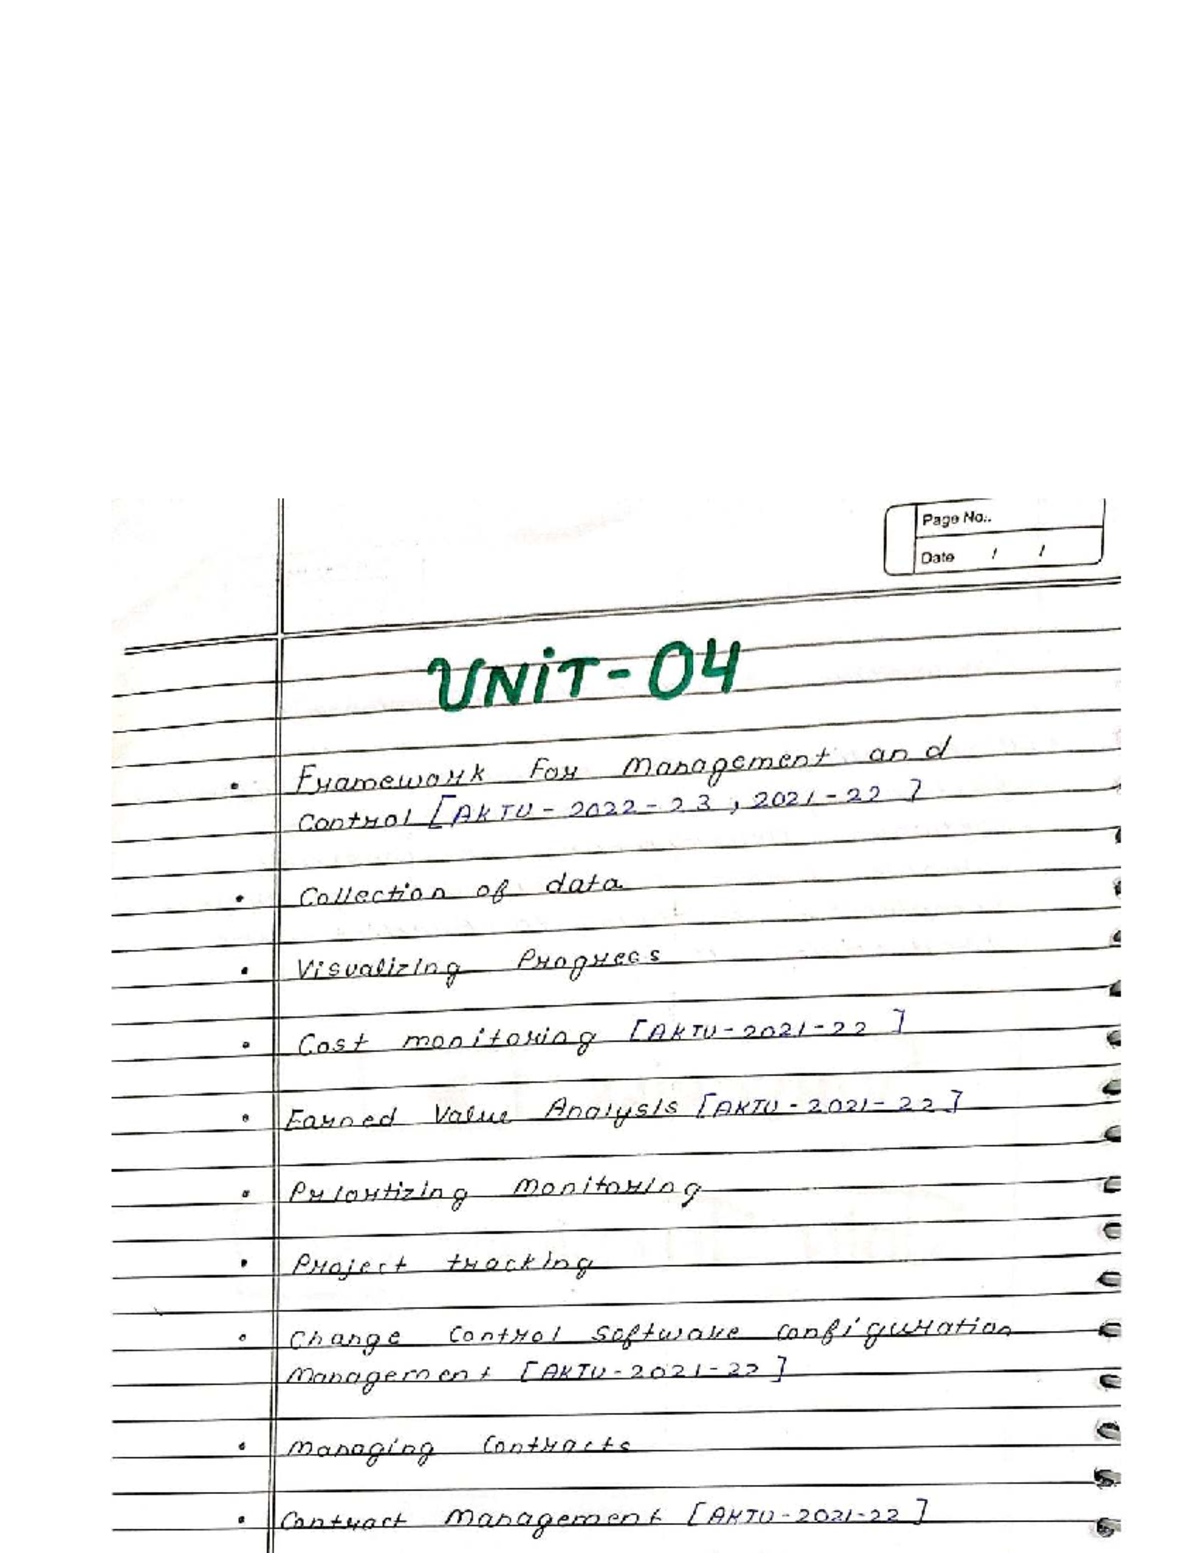 Page No..
Date / /
UNiT-04
• Framework For Management and
Control [AKTU-2022-23, 2021-22]
• Collection of data
• Visualizing Progress
• Cost monitoring [AKTU-2021-22]
• Earned Value Analysis [AKTU-2021-22]
• Prioritizing monitoring
• Project tracking
• Change Control Software Configuration
Management [AKTU-2021-22]
• Managing Contracts
• Contract Management [AKTU-2021-22]